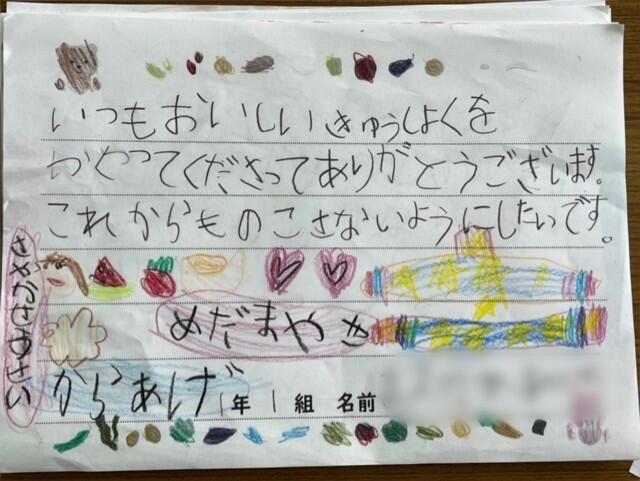 いつもおいしいきゅうしょくを
つくってくださってありがとうございます。
これからものこさないようにしたいです。
めだまやき
からあげ
1年 1組 名前